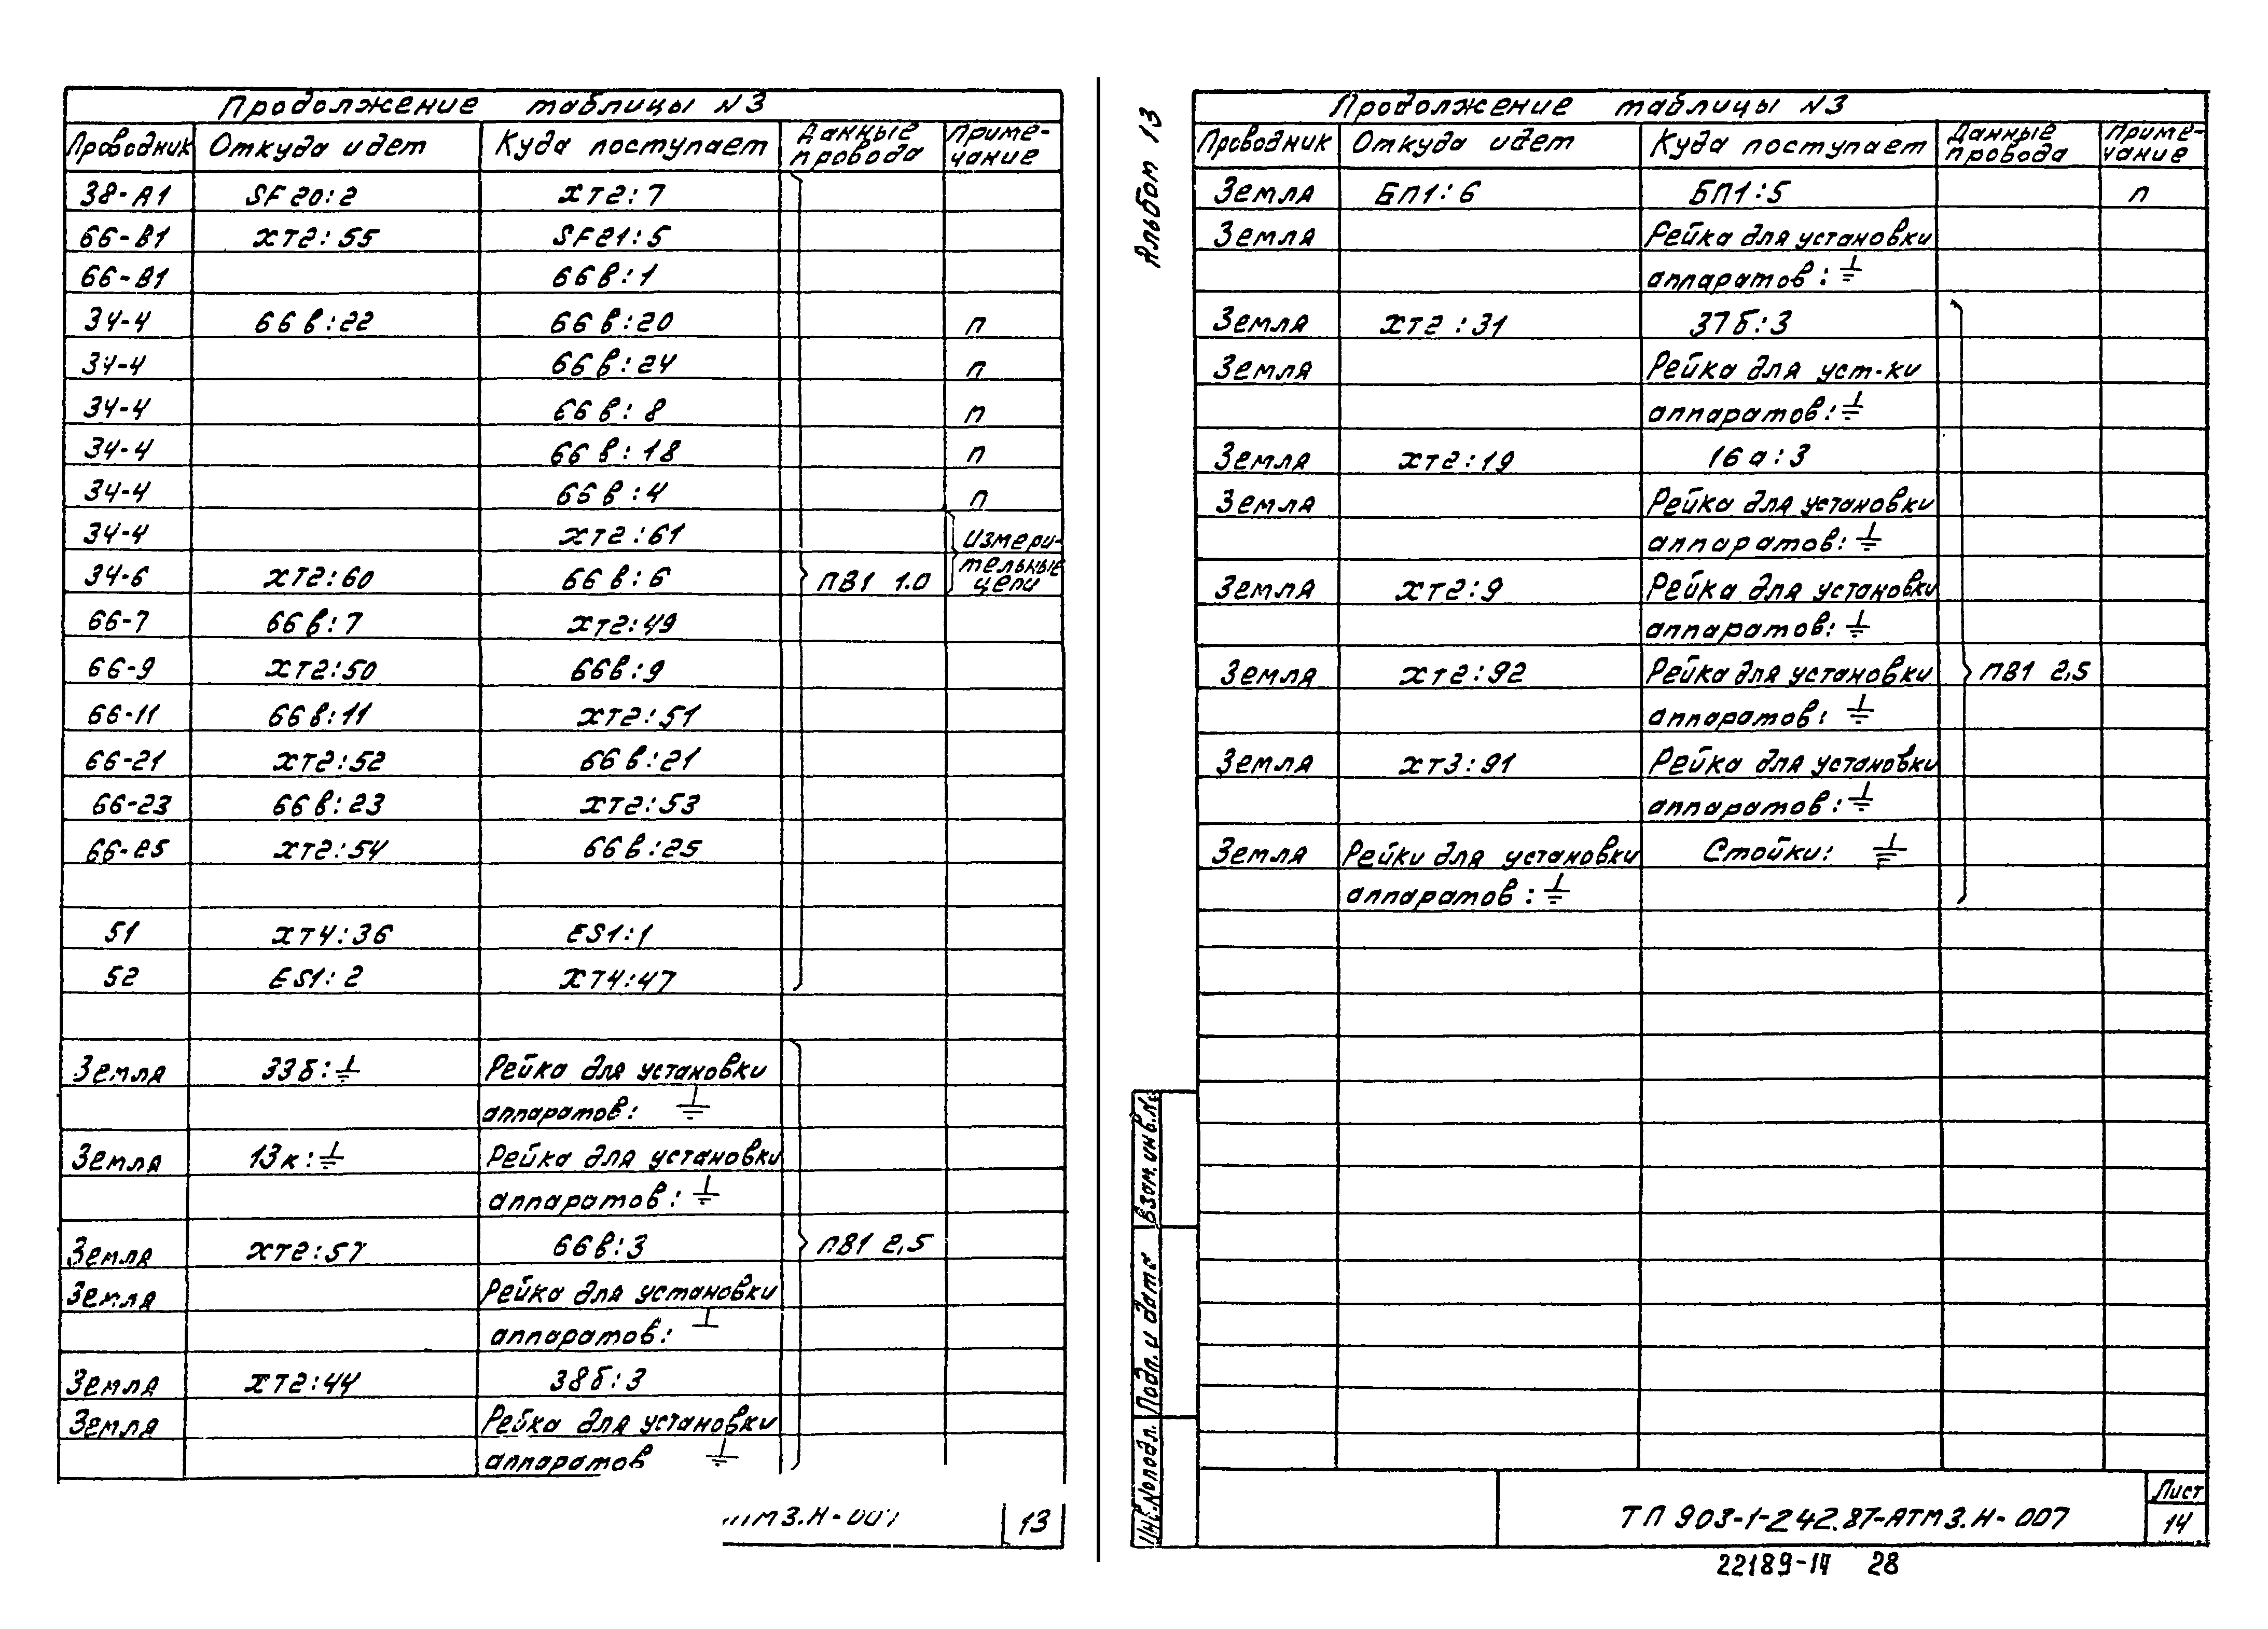 Продолжение таблицы N3
Проводник Откуда идет Куда поступает Данные провода Приме-чание
38-А1 SF20:2 хт2:7
66-В1 хт2:55 SF21:5
66-В1 66в:1
34-4 66в:22 66в:20 п
34-4 66в:24 п
34-4 66в:8 п
34-4 66в:18 п
34-4 66в:4 п
34-4 хт2:61 Измери-
34-6 хт2:60 66в:6 ПВ1 1.0 тельные цепи
66-7 66в:7 хт2:49
66-9 хт2:50 66в:9
66-11 66в:11 хт2:51
66-21 хт2:52 66в:21
66-23 66в:23 хт2:53
66-25 хт2:54 66в:25
51 хт4:36 ES1:1
52 ES1:2 хт4:47
Земля 33б:⏚ Рейка для установки
аппаратов: ⏚
Земля 13к:⏚ Рейка для установки
аппаратов: ⏚
Земля хт2:57 66в:3 ПВ1 2,5
Земля Рейка для установки
аппаратов: ⏚
Земля хт2:44 38б:3
Земля Рейка для установки
аппаратов ⏚
тм3.Н-007 13
Альбом 13
Продолжение таблицы N3
Проводник Откуда идет Куда поступает Данные провода Приме-чание
Земля БП1:6 БП1:5 п
Земля Рейка для установки
аппаратов: ⏚
Земля хт2:31 37б:3
Земля Рейка для уст-ки
аппаратов: ⏚
Земля хт2:19 16а:3
Земля Рейка для установки
аппаратов: ⏚
Земля хт2:9 Рейка для установки
аппаратов: ⏚
Земля хт2:92 Рейка для установки ПВ1 2,5
аппаратов: ⏚
Земля хт3:91 Рейка для установки
аппаратов: ⏚
Земля Рейки для установки Стойки: ⏚
аппаратов: ⏚
Взам.инв.№
Подп. и дата
Инв.Nподл.
ТП 903-1-242.87-АТМ3.Н-007
Лист
14
22189-14 28